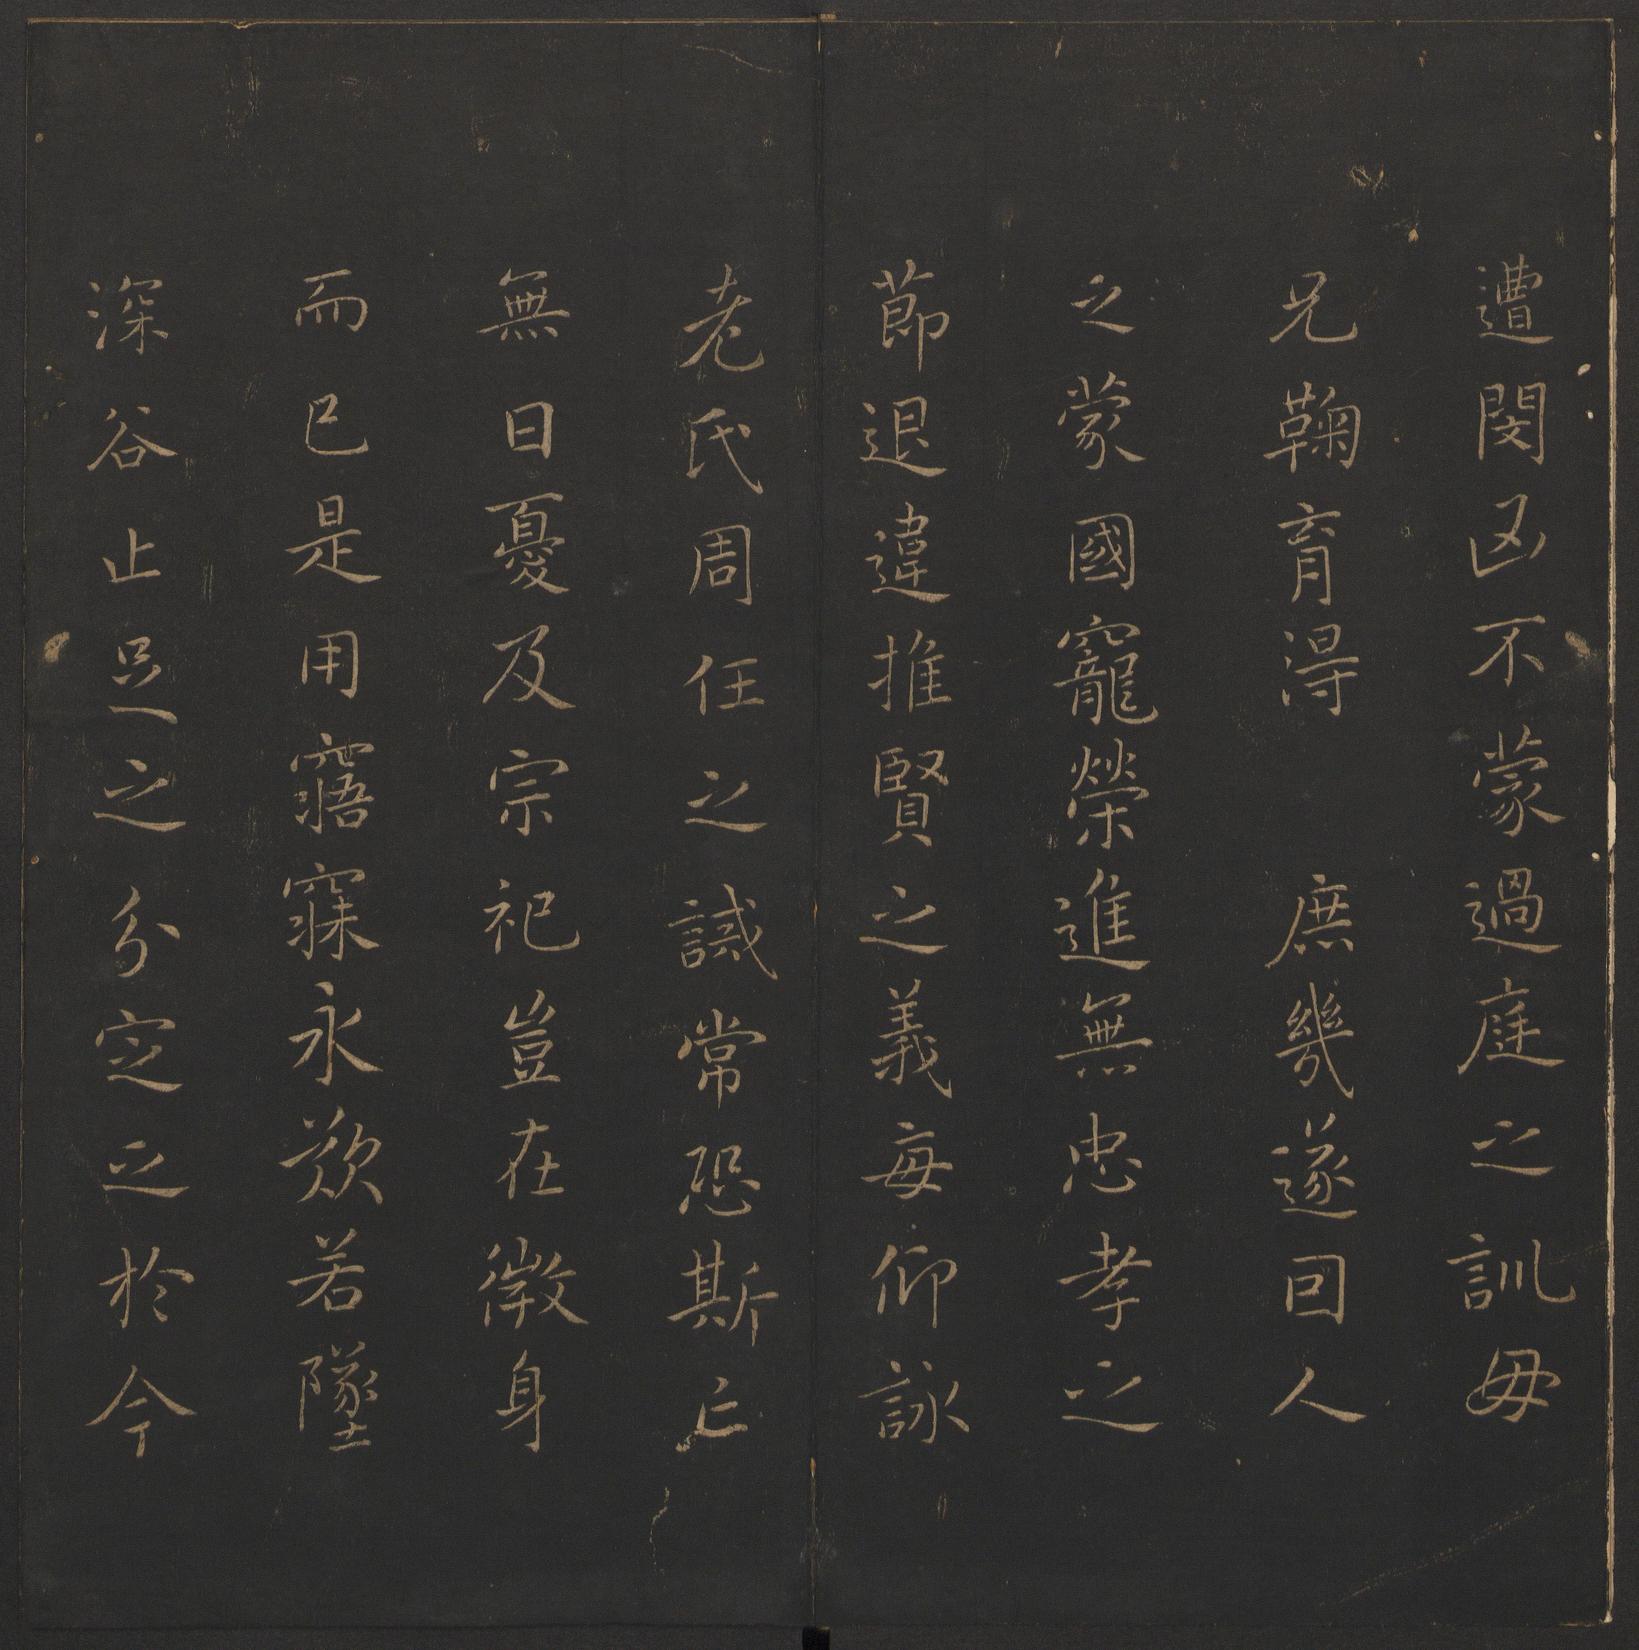 遭閔凶不蒙過庭之訓毋
兄鞠育得 庶幾遂因人
之蒙國寵榮進無忠孝之
節退違推賢之義每仰詠
老氏周任之誡常恐斯亡
無日憂及宗祀豈在微身
而已是用寤寐永歎若墜
深谷止足之分定之於今